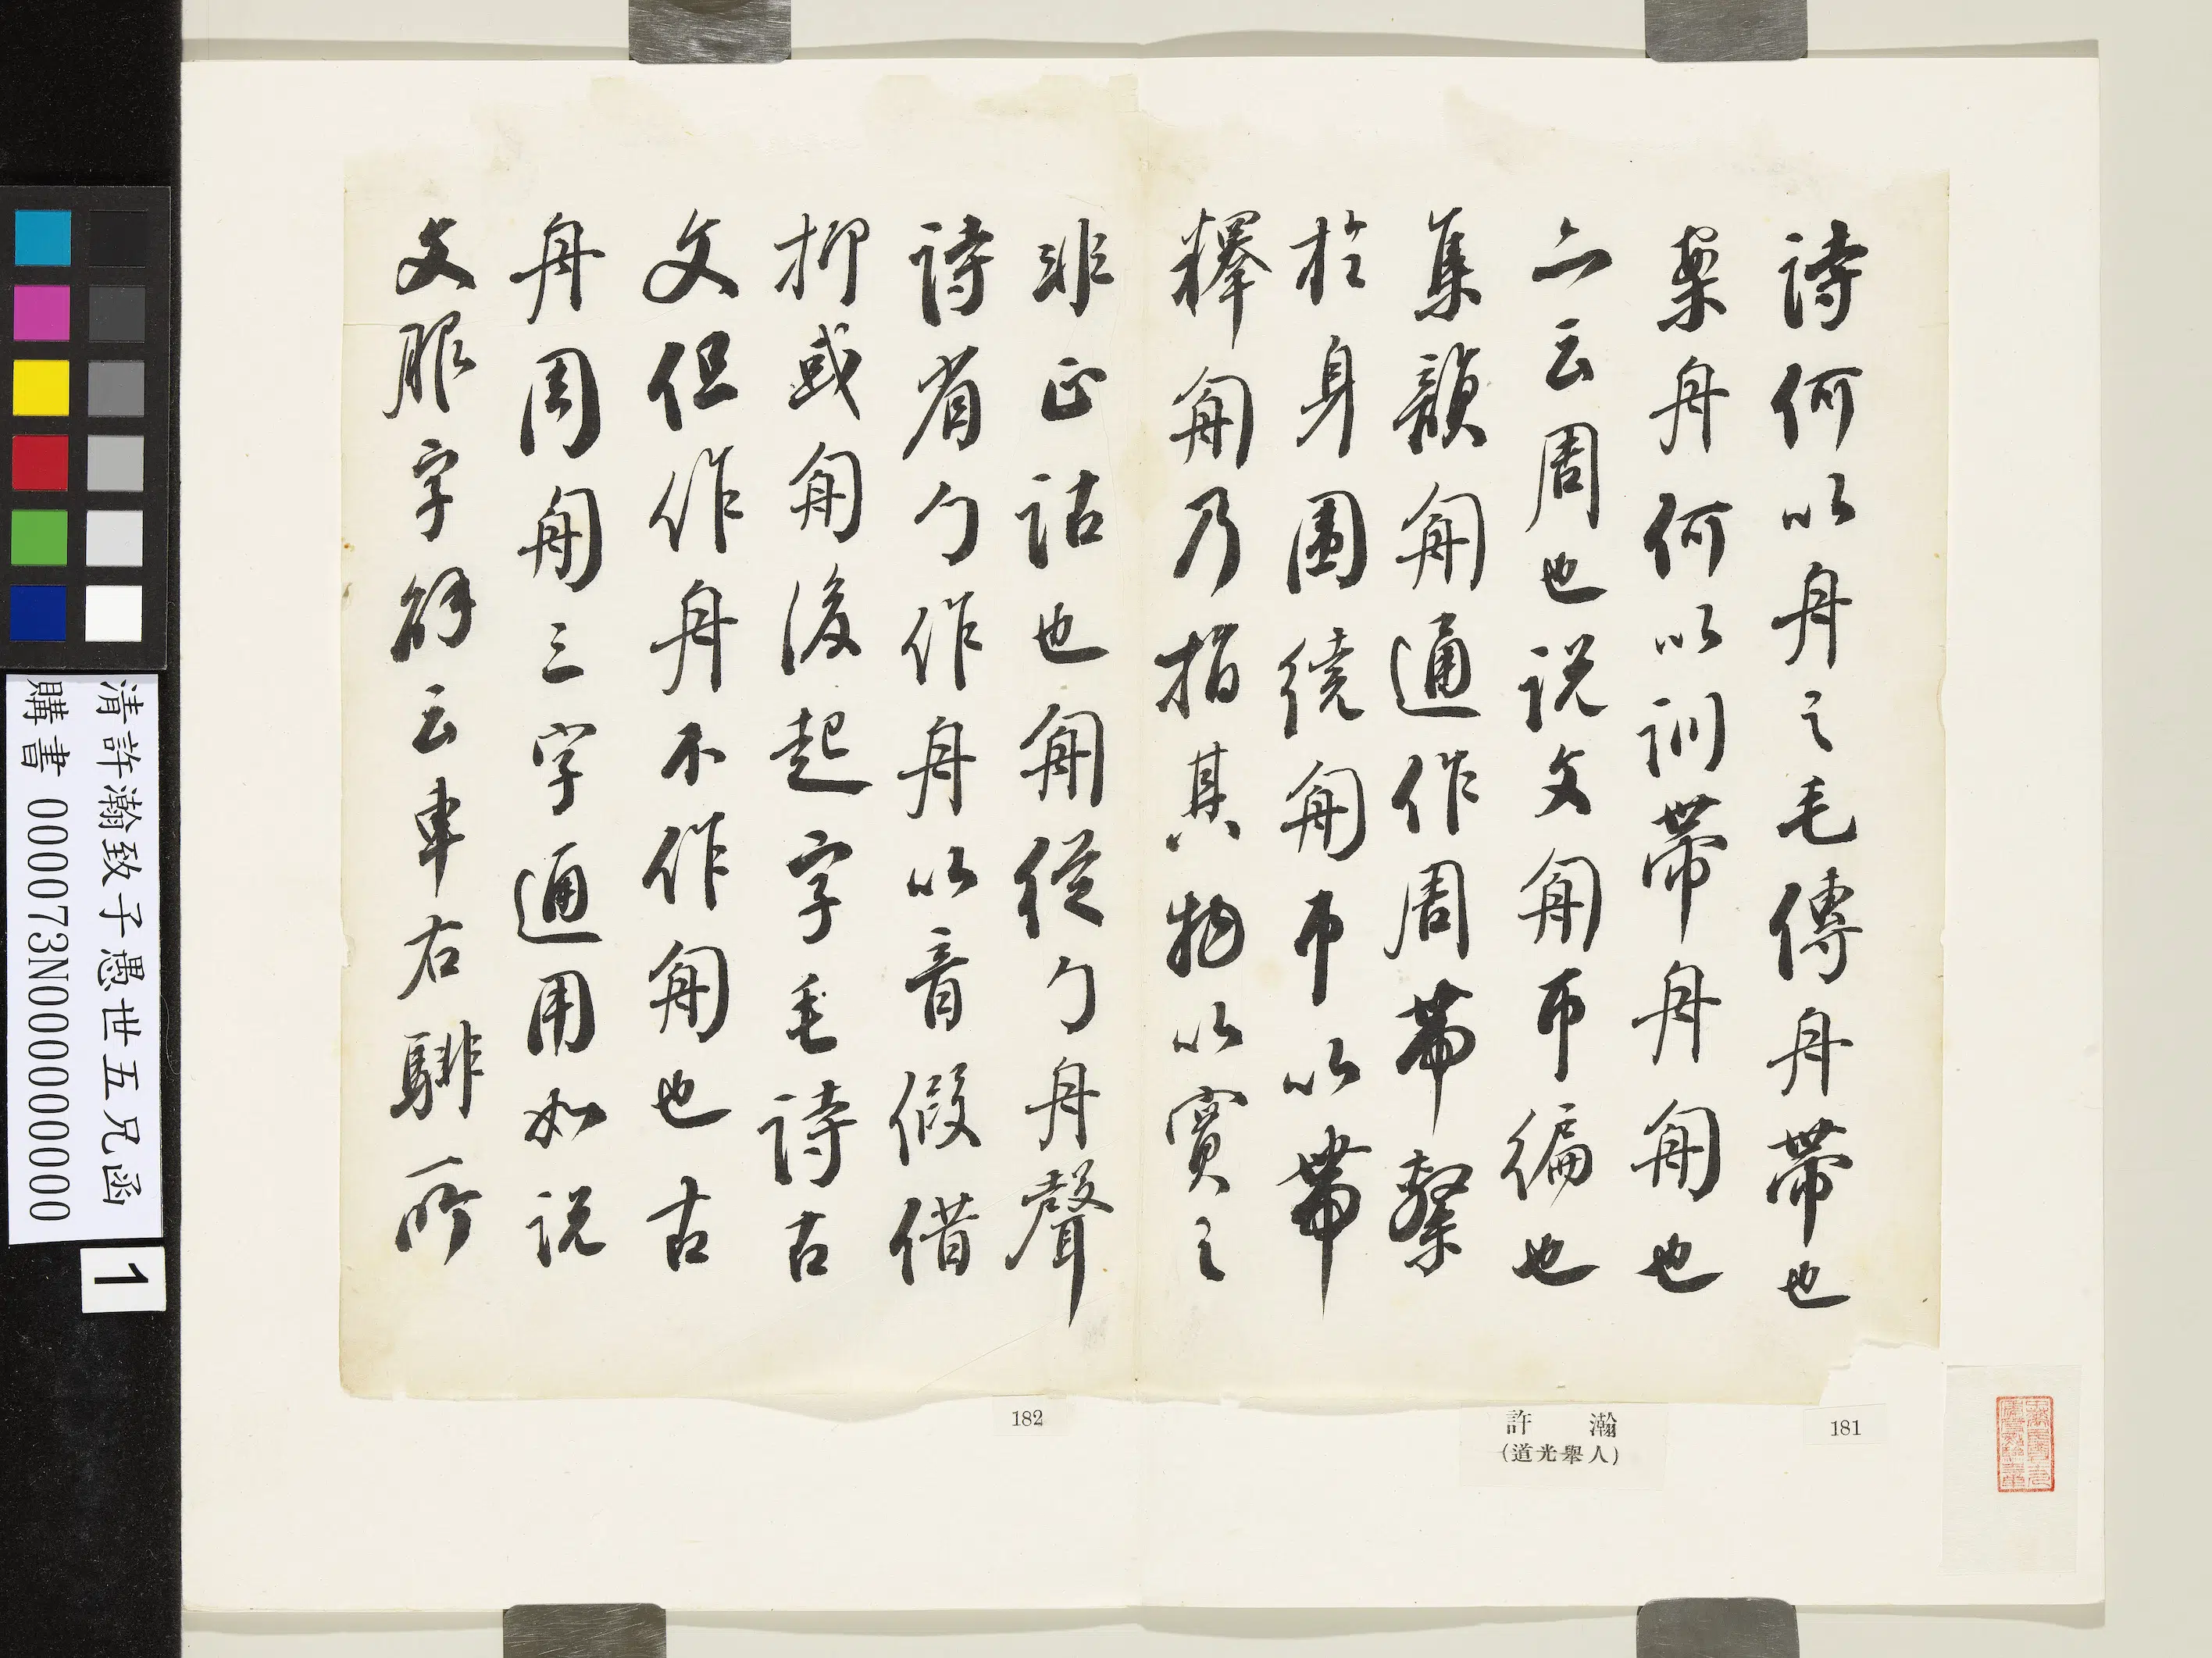 詩何以舟之毛傳舟帶也
案舟何以訓帶舟匊也
亠云周也説文匊帀徧也
集韻匊通作周帶繫
於身圍繞匊帀以帶
釋匊乃指其物以實之
非正詁也匊從勹舟聲
詩省勹作舟以音假借
抑或匊後起字毛詩古
文但作舟不作匊也古
舟周匊三字通用如説
文服字解云車右騑所
182
許瀚
(道光舉人)
181
清許瀚致子愚世五兄函
購書 0000073N000000000
1